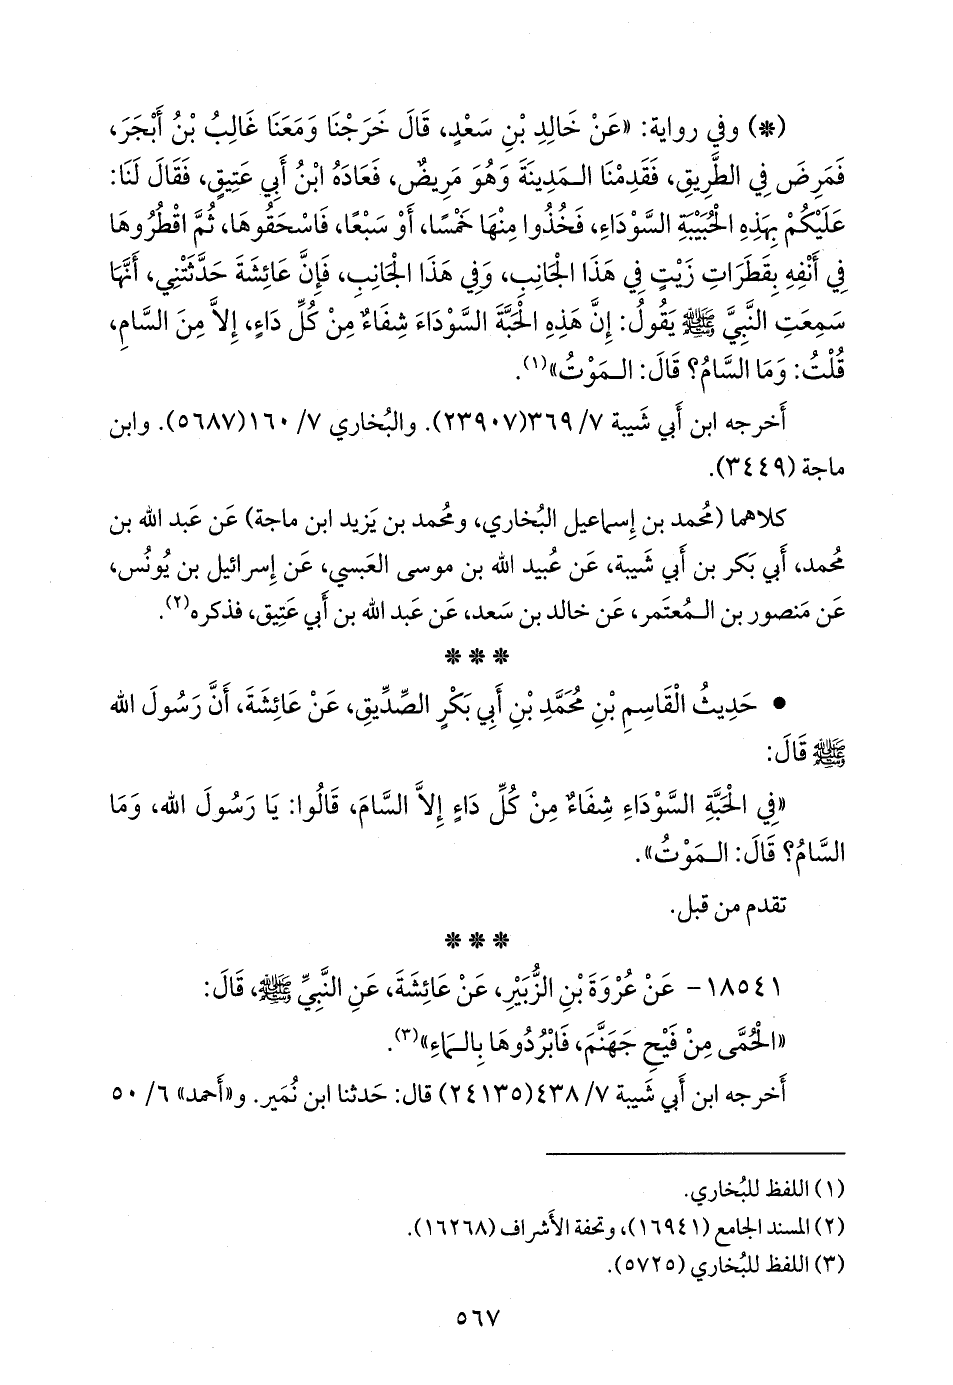 (*) وفي رواية: «عَنْ خَالِدِ بْنِ سَعْدٍ، قَالَ خَرَجْنَا وَمَعَنَا غَالِبُ بْنُ أَبْجَرَ،
فَمَرِضَ فِي الطَّرِيقِ، فَقَدِمْنَا الـمَدِينَةَ وَهُوَ مَرِيضٌ، فَعَادَهُ ابْنُ أَبِي عَتِيقٍ، فَقَالَ لَنَا:
عَلَيْكُمْ بِهَذِهِ الْحُبَيْبَةِ السَّوْدَاءِ، فَخُذُوا مِنْهَا خَمْسًا، أَوْ سَبْعًا، فَاسْحَقُوهَا، ثُمَّ اقْطُرُوهَا
فِي أَنْفِهِ بِقَطَرَاتِ زَيْتٍ فِي هَذَا الْجَانِبِ، وَفِي هَذَا الْجَانِبِ، فَإِنَّ عَائِشَةَ حَدَّثَتْنِي، أَنَّهَا
سَمِعَتِ النَّبِيَّ ﷺ يَقُولُ: إِنَّ هَذِهِ الْحَبَّةَ السَّوْدَاءَ شِفَاءٌ مِنْ كُلِّ دَاءٍ، إِلاَّ مِنَ السَّامِ،
قُلْتُ: وَمَا السَّامُ؟ قَالَ: الـمَوْتُ»(١).
أَخرجه ابن أَبي شَيبة ٧/ ٣٦٩(٢٣٩٠٧). والبُخاري ٧/ ١٦٠(٥٦٨٧). وابن
ماجة (٣٤٤٩).
كلاهما (مُحمد بن إِسماعيل البُخاري، ومُحمد بن يَزيد ابن ماجة) عَن عَبد الله بن
مُحمد، أَبي بَكر بن أَبي شَيبة، عَن عُبيد الله بن موسى العَبسي، عَن إِسرائيل بن يُونُس،
عَن مَنصور بن الـمُعتَمر، عَن خالد بن سَعد، عَن عَبد الله بن أَبي عَتِيق، فذكره(٢).
* * *
• حَدِيثُ الْقَاسِمِ بْنِ مُحَمَّدِ بْنِ أَبِي بَكْرٍ الصِّدِّيقِ، عَنْ عَائِشَةَ، أَنَّ رَسُولَ الله
ﷺ قَالَ:
«فِي الْحَبَّةِ السَّوْدَاءِ شِفَاءٌ مِنْ كُلِّ دَاءٍ إِلاَّ السَّامَ، قَالُوا: يَا رَسُولَ الله، وَمَا
السَّامُ؟ قَالَ: الـمَوْتُ».
تقدم من قبل.
* * *
١٨٥٤١- عَنْ عُرْوَةَ بْنِ الزُّبَيْرِ، عَنْ عَائِشَةَ، عَنِ النَّبِيِّ ﷺ، قَالَ:
«الْحُمَّى مِنْ فَيْحِ جَهَنَّمَ، فَابْرُدُوهَا بِالـمَاءِ»(٣).
أَخرجه ابن أَبي شَيبة ٧/ ٤٣٨(٢٤١٣٥) قال: حَدثنا ابن نُمَير. و«أَحمد» ٦/ ٥٠
(١) اللفظ للبُخاري.
(٢) المسند الجامع (١٦٩٤١)، وتحفة الأَشراف (١٦٢٦٨).
(٣) اللفظ للبُخاري (٥٧٢٥).
٥٦٧